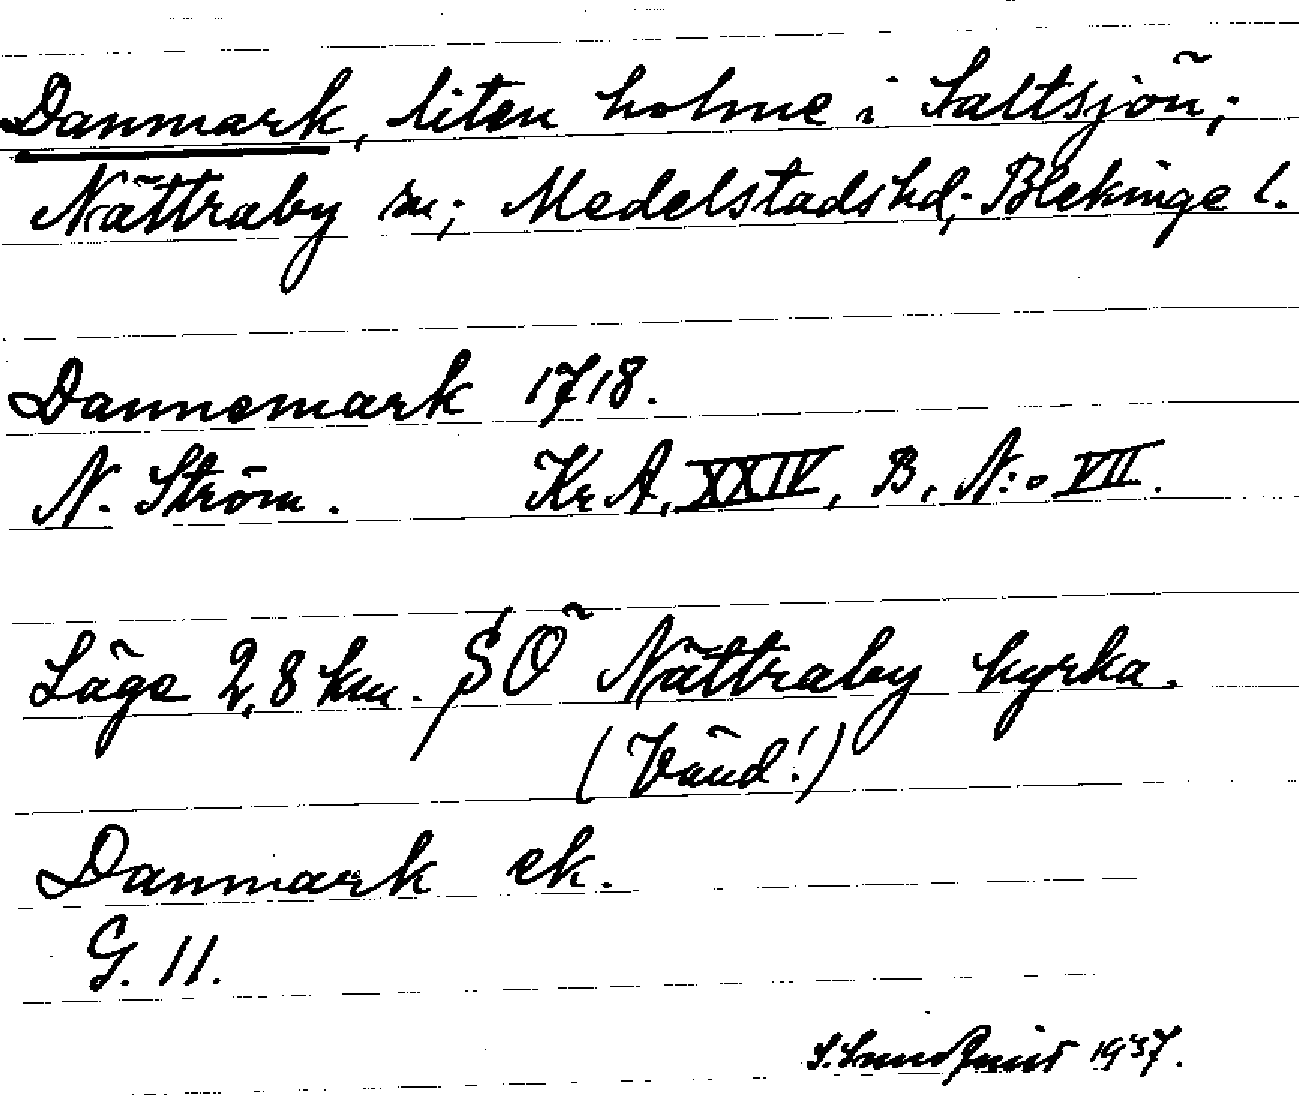 Danmark, liten holme i Saltsjön;
Nättraby sn; Medelstads hd; Blekinge l.
Dannemark 1718.
N. Ström. Kr A, XXIV, B, N:o VII.
Läge 2,8 km. SÖ Nättraby kyrka.
(Vänd!)
Danmark ek.
G. 11.
S. Lundquist 1937.